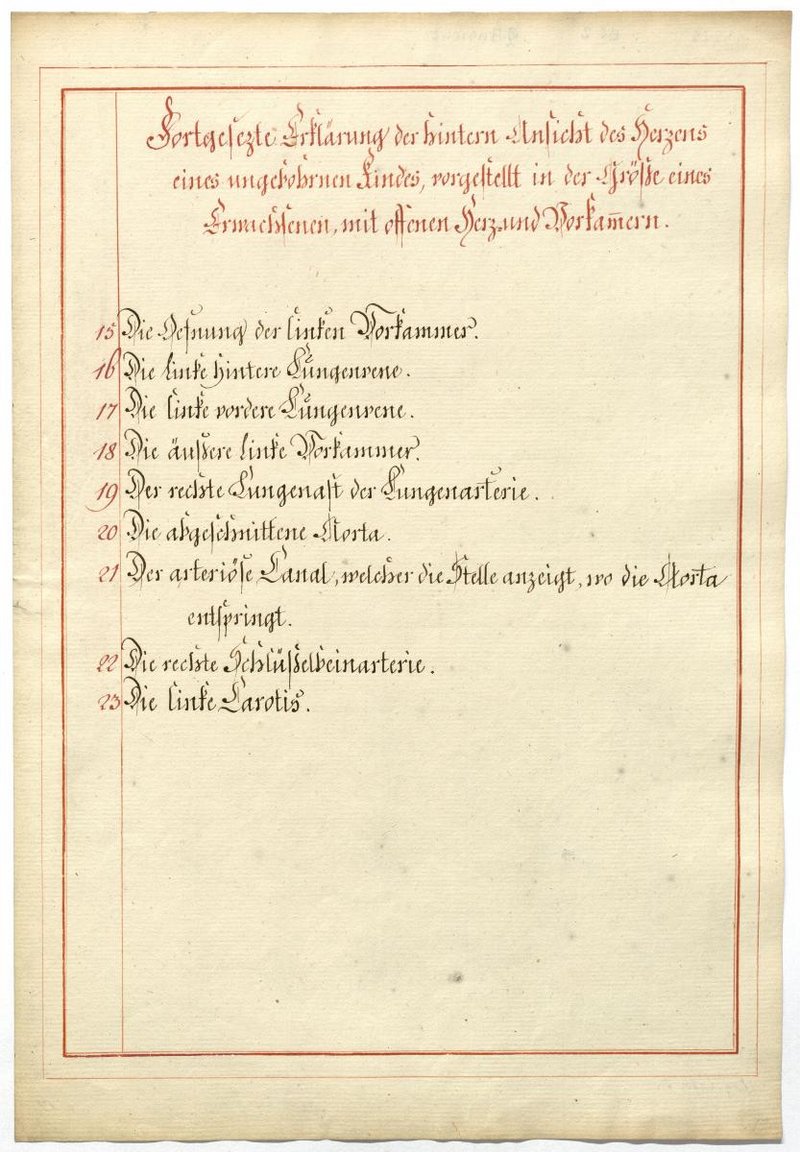 Fortgesezte Erklärung der hintern Ansicht des Herzens
eines ungebohrnen Kindes, vorgestellt in der Größe eines
Erwachsenen, mit offenen Herz- und Vorkam̅ern.
15 Die Oefnung der linken Vorkammer.
16 Die linke hintere Lungenvene.
17 Die linke vordere Lungenvene.
18 Die äußere linke Vorkammer.
19 Der rechte Lungenast der Lungenarterie.
20 Die abgeschnittene Aorta.
21 Der arteriöse Canal, welcher die Stelle anzeigt, wo die Aorta
entspringt.
22 Die rechte Schlüßelbeinarterie.
23 Die linke Carotis.